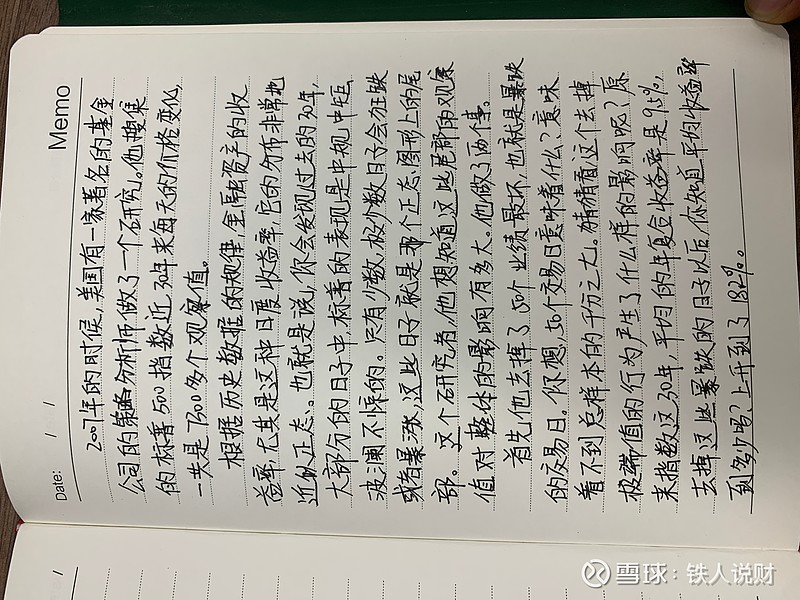 Memo
Date: / /
2007年的时候,美国有一家著名的基金
公司的策略分析师做了一个研究。他搜集
的标普500指数近30年来每天的价格变化
一共是7300多个观察值。
根据历史数据的规律,金融资产的收
益率尤其是这种日度收益率它的分布非常地
近似正态。也就是说,你会发现过去的30年,
大部分的日子中,标普的表现是中规中矩,
波澜不惊的。只有少数,极少数日子会狂跌
或者暴涨,这些日子就是那个正态图形上的尾
部。这个研究者,他想知道这些尾部的观察
值对整体的影响有多大。他做了两件事。
首先,他去掉了50个业绩最坏,也就是暴跌
的交易日。你想,50个交易日意味着什么?意味
着不到总样本的千分之七。猜猜看这个去掉
极端值的行为产生了什么样的影响呢?原
来指数这30年,平均的年复合收益率是9.5%,
去掉这些暴跌的日子以后,你知道平均收益率
到多少吗?上升到了18.2%。
/
雪球:铁人说财